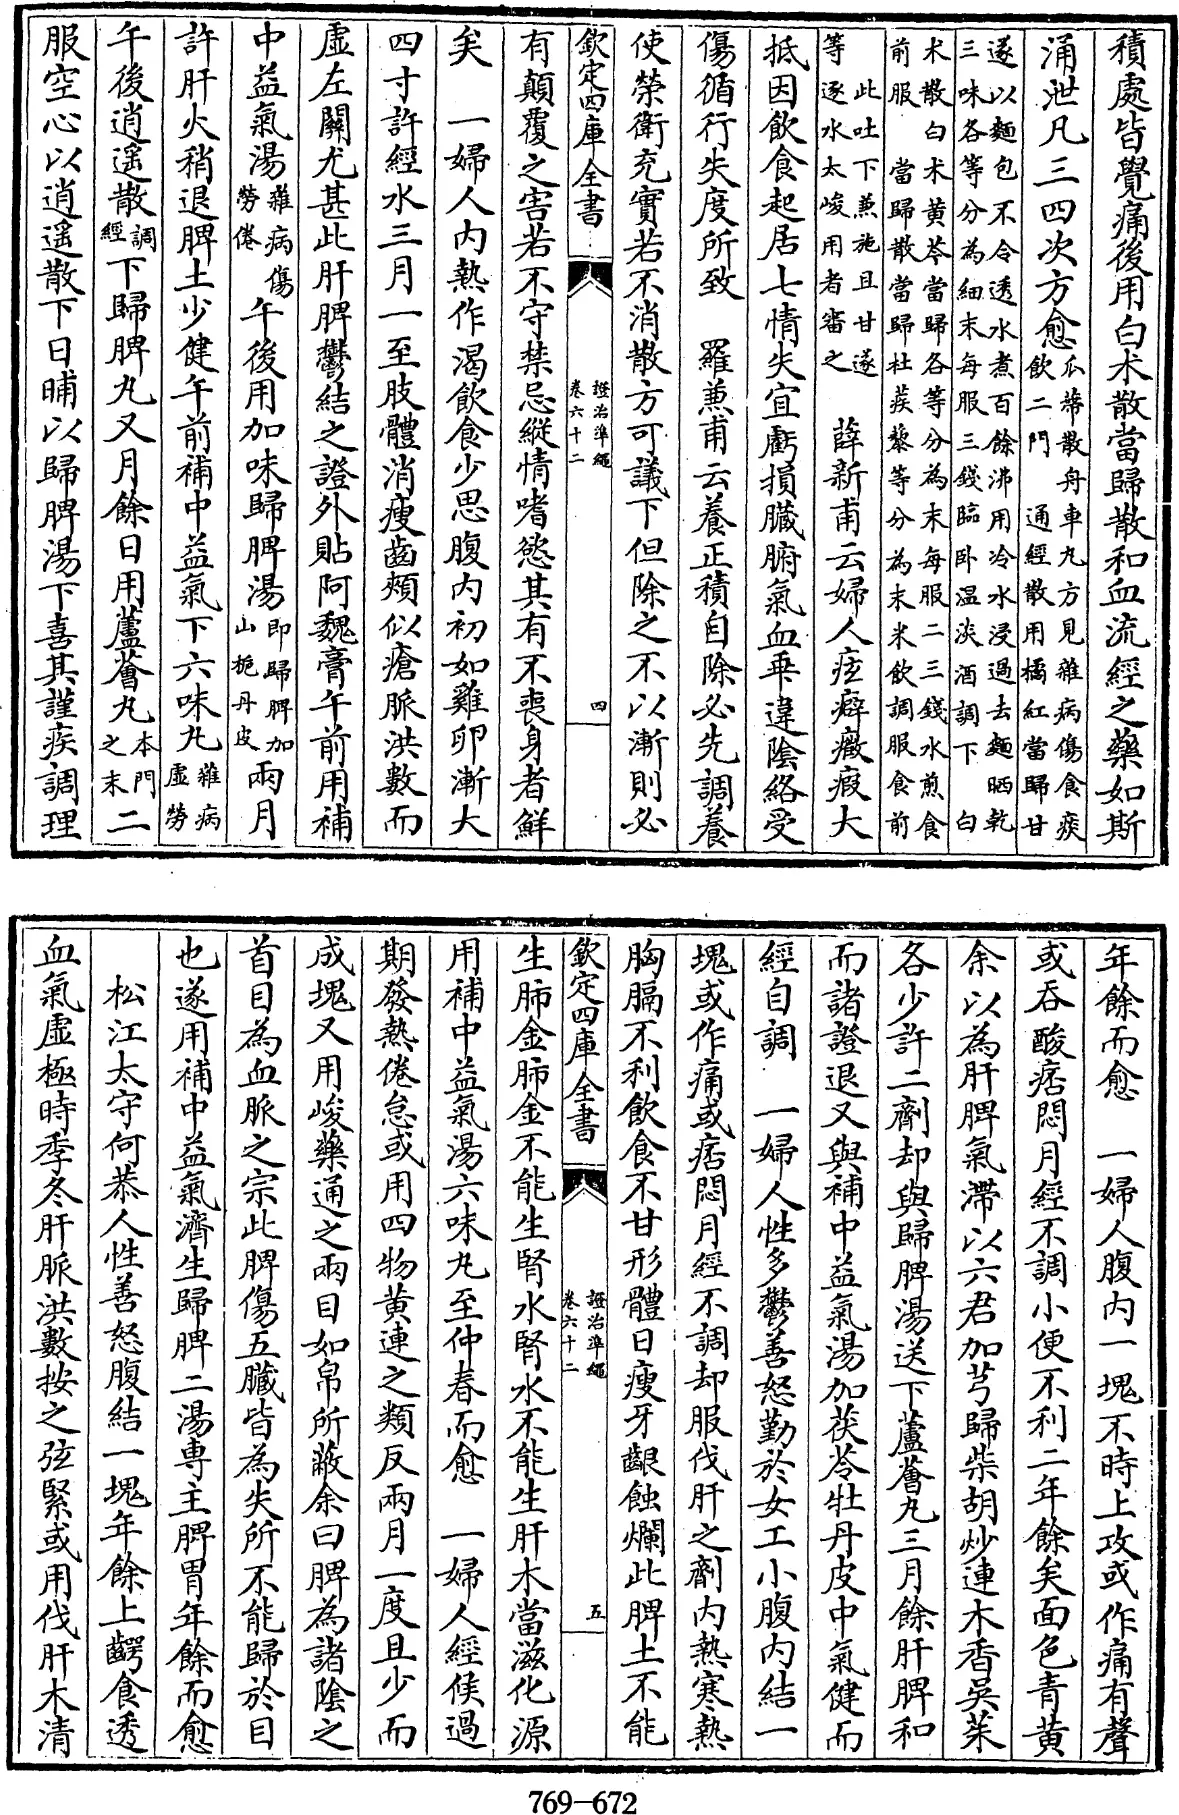 積處皆覺痛後用白术散當歸散和血流經之藥如斯
涌泄凡三四次方愈瓜蒂散舟車丸方見雜病傷食痰飲二門　通經散用橘紅當歸甘
遂以麵包不令透水煮百餘沸用冷水浸過去麵晒乾三味各等分為細末每服三錢臨卧温淡酒調下　白
术散白术黄芩當歸各等分為末每服二三錢水煎食前服　當歸散當歸杜蒺藜等分為末米飲調服食前
此吐下兼施且甘遂等逐水太峻用者審之　薛新甫云婦人痃癖癥瘕大
抵因飲食起居七情失宜虧損臟腑氣血乖違陰絡受
傷循行失度所致　羅兼甫云養正積自除必先調養
使榮衛充實若不消散方可議下但除之不以漸則必
欽定四庫全書　證治準繩卷六十二　四
有顛覆之害若不守禁忌縱情嗜慾其有不喪身者鮮
矣　一婦人内熱作渴飲食少思腹内初如雞卵漸大
四寸許經水三月一至肢體消瘦齒頰似瘡脈洪數而
虚左關尤甚此肝脾鬱結之證外貼阿魏膏午前用補
中益氣湯雜病傷勞倦午後用加味歸脾湯即歸脾加山梔丹皮兩月
許肝火稍退脾土少健午前補中益氣下六味丸雜病虚勞
午後逍遥散調經下歸脾丸又月餘日用蘆薈丸本門之末二
服空心以逍遥散下日晡以歸脾湯下喜其謹疾調理
年餘而愈　一婦人腹内一塊不時上攻或作痛有聲
或吞酸痞悶月經不調小便不利二年餘矣面色青黄
余以為肝脾氣滯以六君加芎歸柴胡炒連木香吳茱
各少許二劑却與歸脾湯送下蘆薈丸三月餘肝脾和
而諸證退又與補中益氣湯加茯苓牡丹皮中氣健而
經自調　一婦人性多鬱善怒勤於女工小腹内結一
塊或作痛或痞悶月經不調却服伐肝之劑内熱寒熱
胸膈不利飲食不甘形體日瘦牙齦蝕爛此脾土不能
欽定四庫全書　證治準繩卷六十二　五
生肺金肺金不能生腎水腎水不能生肝木當滋化源
用補中益氣湯六味丸至仲春而愈　一婦人經候過
期發熱倦怠或用四物黄連之類反兩月一度且少而
成塊又用峻藥通之兩目如帛所蔽余曰脾為諸陰之
首目為血脈之宗此脾傷五臟皆為失所不能歸於目
也遂用補中益氣濟生歸脾二湯專主脾胃年餘而愈
松江太守何恭人性善怒腹結一塊年餘上齶食透
血氣虚極時季冬肝脈洪數按之弦緊或用伐肝木清
769-672